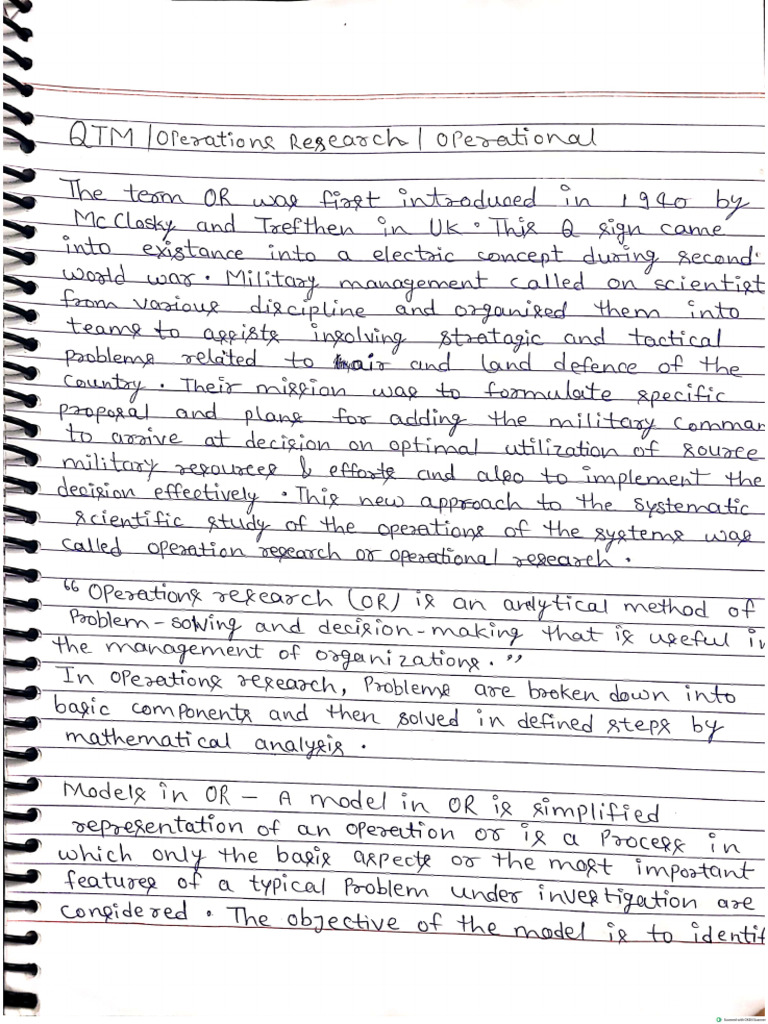 QTM | Operations Research | Operational
The term OR was first introduced in 1940 by
McClosky and Trefthen in UK. This Q sign came
into existance into a electric concept during second
world war. Military management called on scientist
from various discipline and organised them into
teams to assists insolving stratagic and tactical
problems related to air and land defence of the
country. Their mission was to formulate specific
proposal and plans for adding the military comman
to arrive at decision on optimal utilization of source
military resources & efforts and also to implement the
decision effectively. This new approach to the systematic
scientific study of the operations of the systems was
called operation research or operational research.
"Operations research (OR) is an analytical method of
Problem-solving and decision-making that is useful in
the management of organizations."
In operations research, Problems are broken down into
basic components and then solved in defined steps by
mathematical analysis.
Models in OR - A model in OR is simplified
representation of an operation or is a Process in
which only the basis aspects or the most important
features of a typical Problem under investigation are
considered. The objective of the model is to identif
Scanned with OKEN Scanner